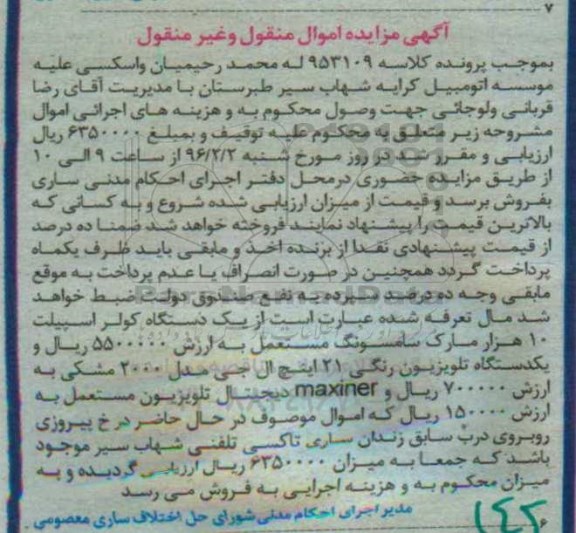 ۷
آگهی مزایده اموال منقول و غیر منقول
بموجب پرونده کلاسه ۹۵۳۱۰۹ له محمد رحیمیان واسکسی علیه
موسسه اتومبیل کرایه شهاب سیر طبرستان با مدیریت آقای رضا
قربانی ولوجائی جهت وصول محکوم به و هزینه های اجرائی اموال
مشروحه زیر متعلق به محکوم علیه توقیف و بمبلغ ۶۳۵۰۰۰۰ ریال
ارزیابی و مقرر شد در روز مورخ شنبه ۹۶/۲/۲ از ساعت ۹ الی ۱۰
از طریق مزایده حضوری درمحل دفتر اجرای احکام مدنی ساری
بفروش برسد و قیمت از میزان ارزیابی شده شروع و به کسانی که
بالاترین قیمت را پیشنهاد نمایند فروخته خواهد شد ضمنا ده درصد
از قیمت پیشنهادی نقدا از برنده اخذ و مابقی باید ظرف یکماه
پرداخت گردد همچنین در صورت انصراف یا عدم پرداخت به موقع
مابقی وجه ده درصد سپرده به نفع صندوق دولت ضبط خواهد
شد مال تعرفه شده عبارت است از یک دستگاه کولر اسپیلت
۱۰ هزار مارک سامسونگ مستعمل به ارزش ۵۵۰۰۰۰۰ ریال و
یکدستگاه تلویزیون رنگی ۲۱ اینچ ال جی مدل ۲۰۰۰ مشکی به
ارزش ۷۰۰۰۰۰ ریال و maxiner دیجیتال تلویزیون مستعمل به
ارزش ۱۵۰۰۰۰ ریال که اموال موصوف در حال حاضر در خ پیروزی
روبروی درب سابق زندان ساری تاکسی تلفنی شهاب سیر موجود
باشد که جمعا به میزان ۶۳۵۰۰۰۰ ریال ارزیابی گردیده و به
میزان محکوم به و هزینه اجرایی به فروش می رسد
مدیر اجرای احکام مدنی شورای حل اختلاف ساری معصومی